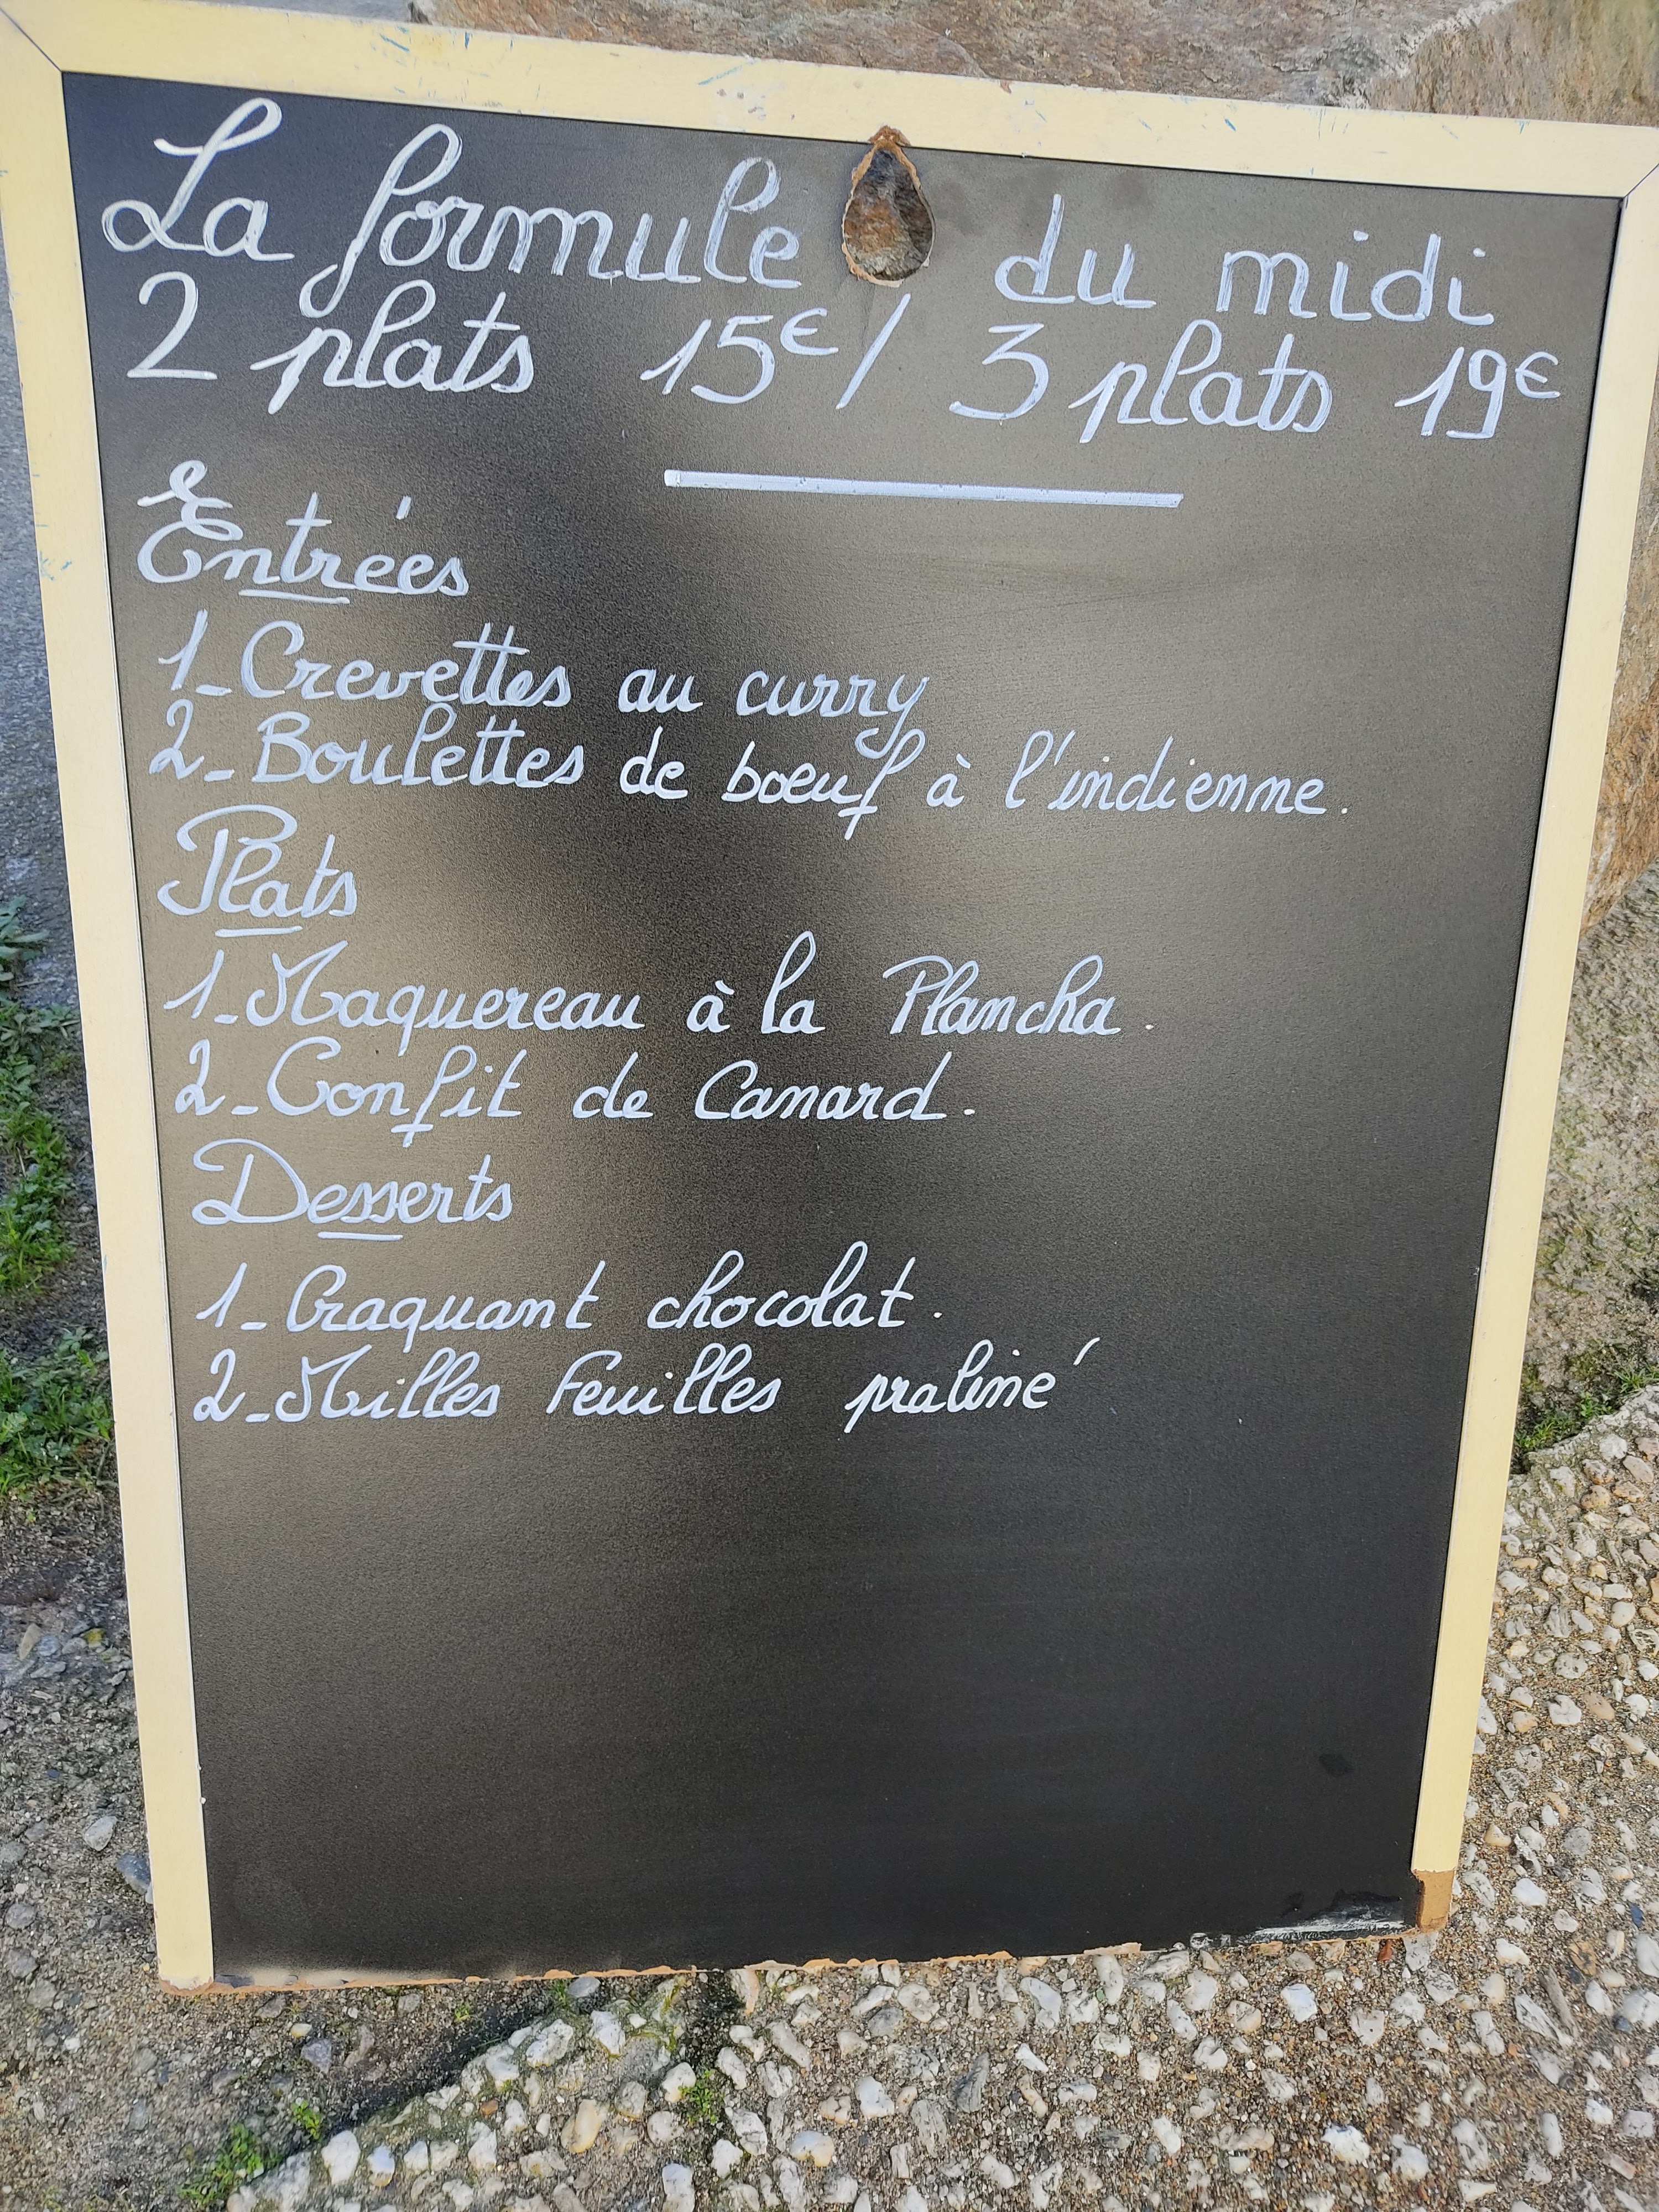 La formule du midi
2 plats 15€ / 3 plats 19€
Entrées
1_Crevettes au curry
2_Boulettes de boeuf à l'indienne.
Plats
1_Maquereau à la Plancha.
2_Confit de Canard.
Desserts
1_Craquant chocolat.
2_Milles Feuilles praliné